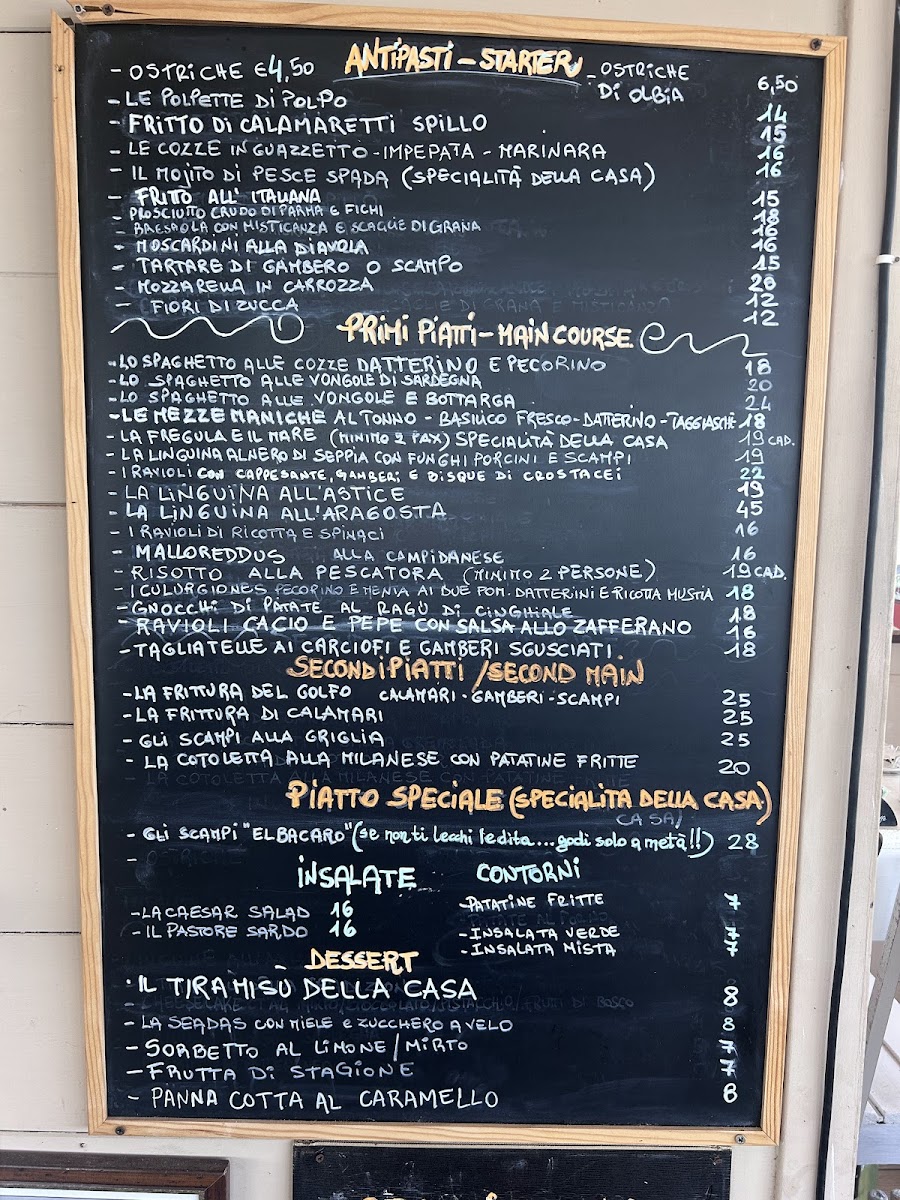 ANTIPASTI - STARTER
- OSTRICHE €4,50 - OSTRICHE DI OLBIA 6,50
- LE POLPETTE DI POLPO 14
- FRITTO DI CALAMARETTI SPILLO 15
- LE COZZE IN GUAZZETTO - IMPEPATA - MARINARA 16
- IL MOJITO DI PESCE SPADA (SPECIALITÀ DELLA CASA) 16
- FRITTO ALL'ITALIANA 15
- PROSCIUTTO CRUDO DI PARMA E FICHI 18
- BRESAOLA CON MISTICANZA E SCAGLIE DI GRANA 16
- MOSCARDINI ALLA DIAVOLA 16
- TARTARE DI GAMBERO O SCAMPO 15
- MOZZARELLA IN CARROZZA 20
- FIORI DI ZUCCA 12
12
PRIMI PIATTI - MAIN COURSE
- LO SPAGHETTO ALLE COZZE DATTERINO E PECORINO 18
- LO SPAGHETTO ALLE VONGOLE DI SARDEGNA 20
- LO SPAGHETTO ALLE VONGOLE E BOTTARGA 24
- LE MEZZE MANICHE AL TONNO - BASILICO FRESCO - DATTERINO - TAGGIASCHE 18
- LA FREGULA E IL MARE (MINIMO 2 PAX) SPECIALITÀ DELLA CASA 19 CAD.
- LA LINGUINA AL NERO DI SEPPIA CON FUNGHI PORCINI E SCAMPI 19
- I RAVIOLI CON CAPPESANTE, GAMBERI E BISQUE DI CROSTACEI 22
- LA LINGUINA ALL'ASTICE 19
- LA LINGUINA ALL'ARAGOSTA 45
- I RAVIOLI DI RICOTTA E SPINACI 16
- MALLOREDDUS ALLA CAMPIDANESE 16
- RISOTTO ALLA PESCATORA (MINIMO 2 PERSONE) 19 CAD.
- I CULURGIONES PECORINO E MENTA AI DUE POM. DATTERINI E RICOTTA MUSTIA 18
- GNOCCHI DI PATATE AL RAGÙ DI CINGHIALE 18
- RAVIOLI CACIO E PEPE CON SALSA ALLO ZAFFERANO 16
- TAGLIATELLE AI CARCIOFI E GAMBERI SGUSCIATI. 18
SECONDI PIATTI / SECOND MAIN
- LA FRITTURA DEL GOLFO CALAMARI - GAMBERI - SCAMPI 25
- LA FRITTURA DI CALAMARI 25
- GLI SCAMPI ALLA GRIGLIA 25
- LA COTOLETTA ALLA MILANESE CON PATATINE FRITTE 20
PIATTO SPECIALE (SPECIALITÀ DELLA CASA)
CASA)
- GLI SCAMPI "EL BACARO" (se non ti lecchi le dita... godi solo a metà!!) 28
INSALATE CONTORNI
- PATATINE FRITTE 7
- LA CAESAR SALAD 16
- IL PASTORE SARDO 16
- INSALATA VERDE 7
- INSALATA MISTA 7
- DESSERT
- IL TIRAMISÙ DELLA CASA 8
- LA SEADAS CON MIELE E ZUCCHERO A VELO 8
- SORBETTO AL LIMONE / MIRTO 7
- FRUTTA DI STAGIONE 7
- PANNA COTTA AL CARAMELLO 8